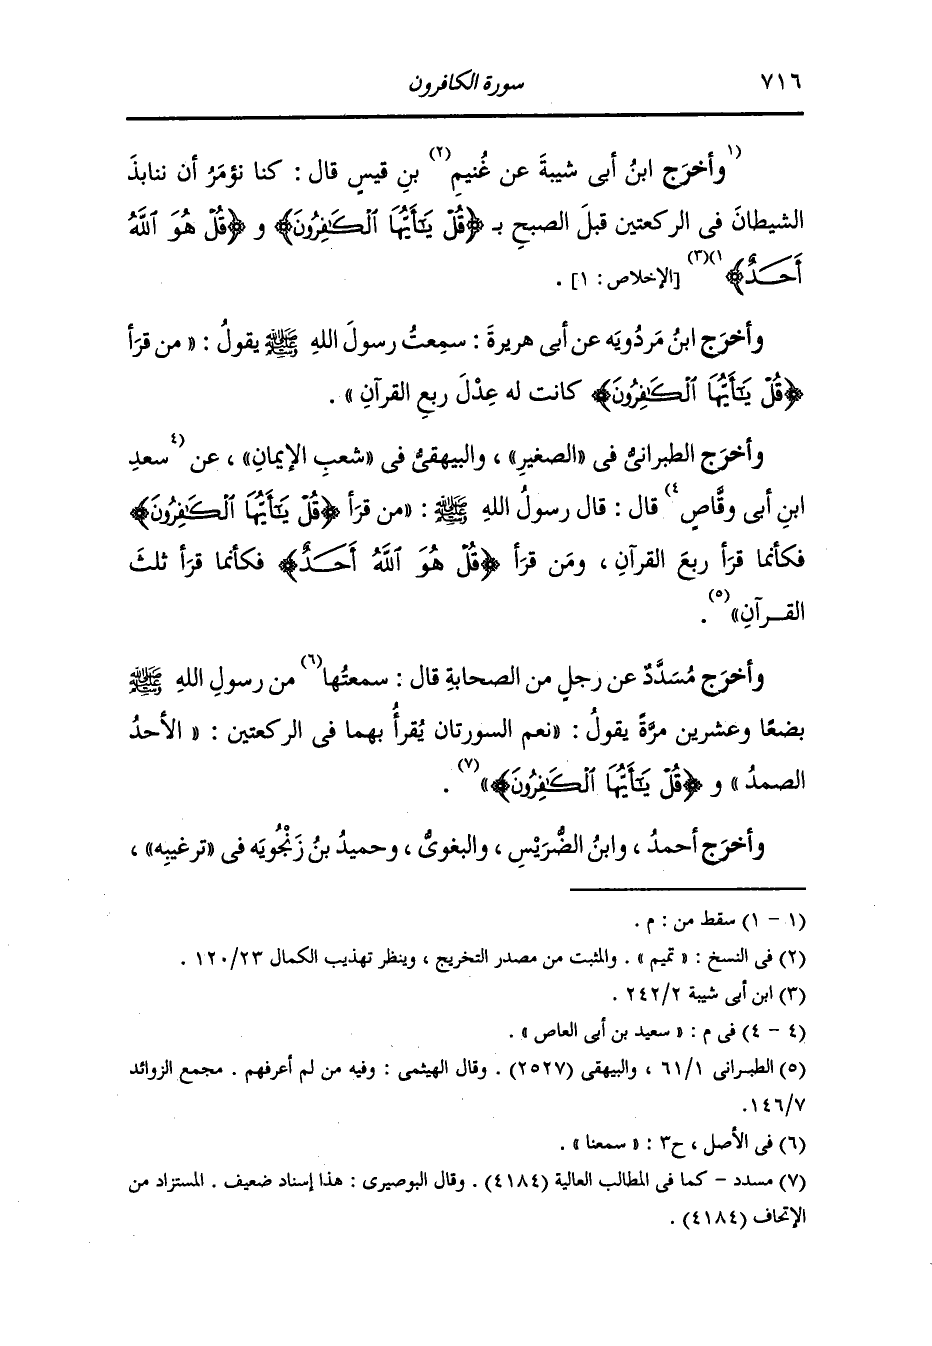 ٧١٦ سورة الكافرون
(١)وأخرَج ابنُ أبى شيبةَ عن غُنيمِ(٢) بنِ قيسٍ قال : كنا نؤمَرُ أن ننابذَ
الشيطانَ فى الركعتين قبلَ الصبحِ بـ ﴿قُلْ يَٰٓأَيُّهَا ٱلْكَٰفِرُونَ﴾ و ﴿قُلْ هُوَ ٱللَّهُ
أَحَدٌ﴾(١)(٣) [الإخلاص : ١] .
وأخرَج ابنُ مَردُويَه عن أبى هريرةَ : سمِعتُ رسولَ اللهِ ﷺ يقولُ : « من قرَأ
﴿قُلْ يَٰٓأَيُّهَا ٱلْكَٰفِرُونَ﴾ كانت له عِدْلَ ربعِ القرآنِ » .
وأخرَج الطبرانىُّ فى «الصغيرِ» ، والبيهقىُّ فى «شعبِ الإيمانِ» ، عن (٤)سعدِ
ابنِ أبى وقَّاصٍ(٤) قال : قال رسولُ اللهِ ﷺ : «من قرَأ ﴿قُلْ يَٰٓأَيُّهَا ٱلْكَٰفِرُونَ﴾
فكأنما قرَأ ربعَ القرآنِ ، ومَن قرَأ ﴿قُلْ هُوَ ٱللَّهُ أَحَدٌ﴾ فكأنما قرَأ ثلثَ
القـرآنِ»(٥) .
وأخرَج مُسَدَّدٌ عن رجلٍ من الصحابةِ قال : سمعتُها(٦) من رسولِ اللهِ ﷺ
بضعًا وعشرين مرَّةً يقولُ : «نعم السورتان يُقرأُ بهما فى الركعتين : « الأحدُ
الصمدُ » و ﴿قُلْ يَٰٓأَيُّهَا ٱلْكَٰفِرُونَ﴾»(٧) .
وأخرَج أحمدُ ، وابنُ الضُّرَيْسِ ، والبغوىُّ ، وحميدُ بنُ زَنْجُويَه فى «ترغيبِه» ،
(١ - ١) سقط من : م .
(٢) فى النسخ : « تميم » . والمثبت من مصدر التخريج ، وينظر تهذيب الكمال ١٢٠/٢٣ .
(٣) ابن أبى شيبة ٢٤٢/٢ .
(٤ - ٤) فى م : « سعيد بن أبى العاص » .
(٥) الطبرانى ٦١/١ ، والبيهقى (٢٥٢٧) . وقال الهيثمى : وفيه من لم أعرفهم . مجمع الزوائد
١٤٦/٧.
(٦) فى الأصل ، ح٣ : « سمعنا » .
(٧) مسدد - كما فى المطالب العالية (٤١٨٤) . وقال البوصيرى : هذا إسناد ضعيف . المستزاد من
الإتحاف (٤١٨٤) .